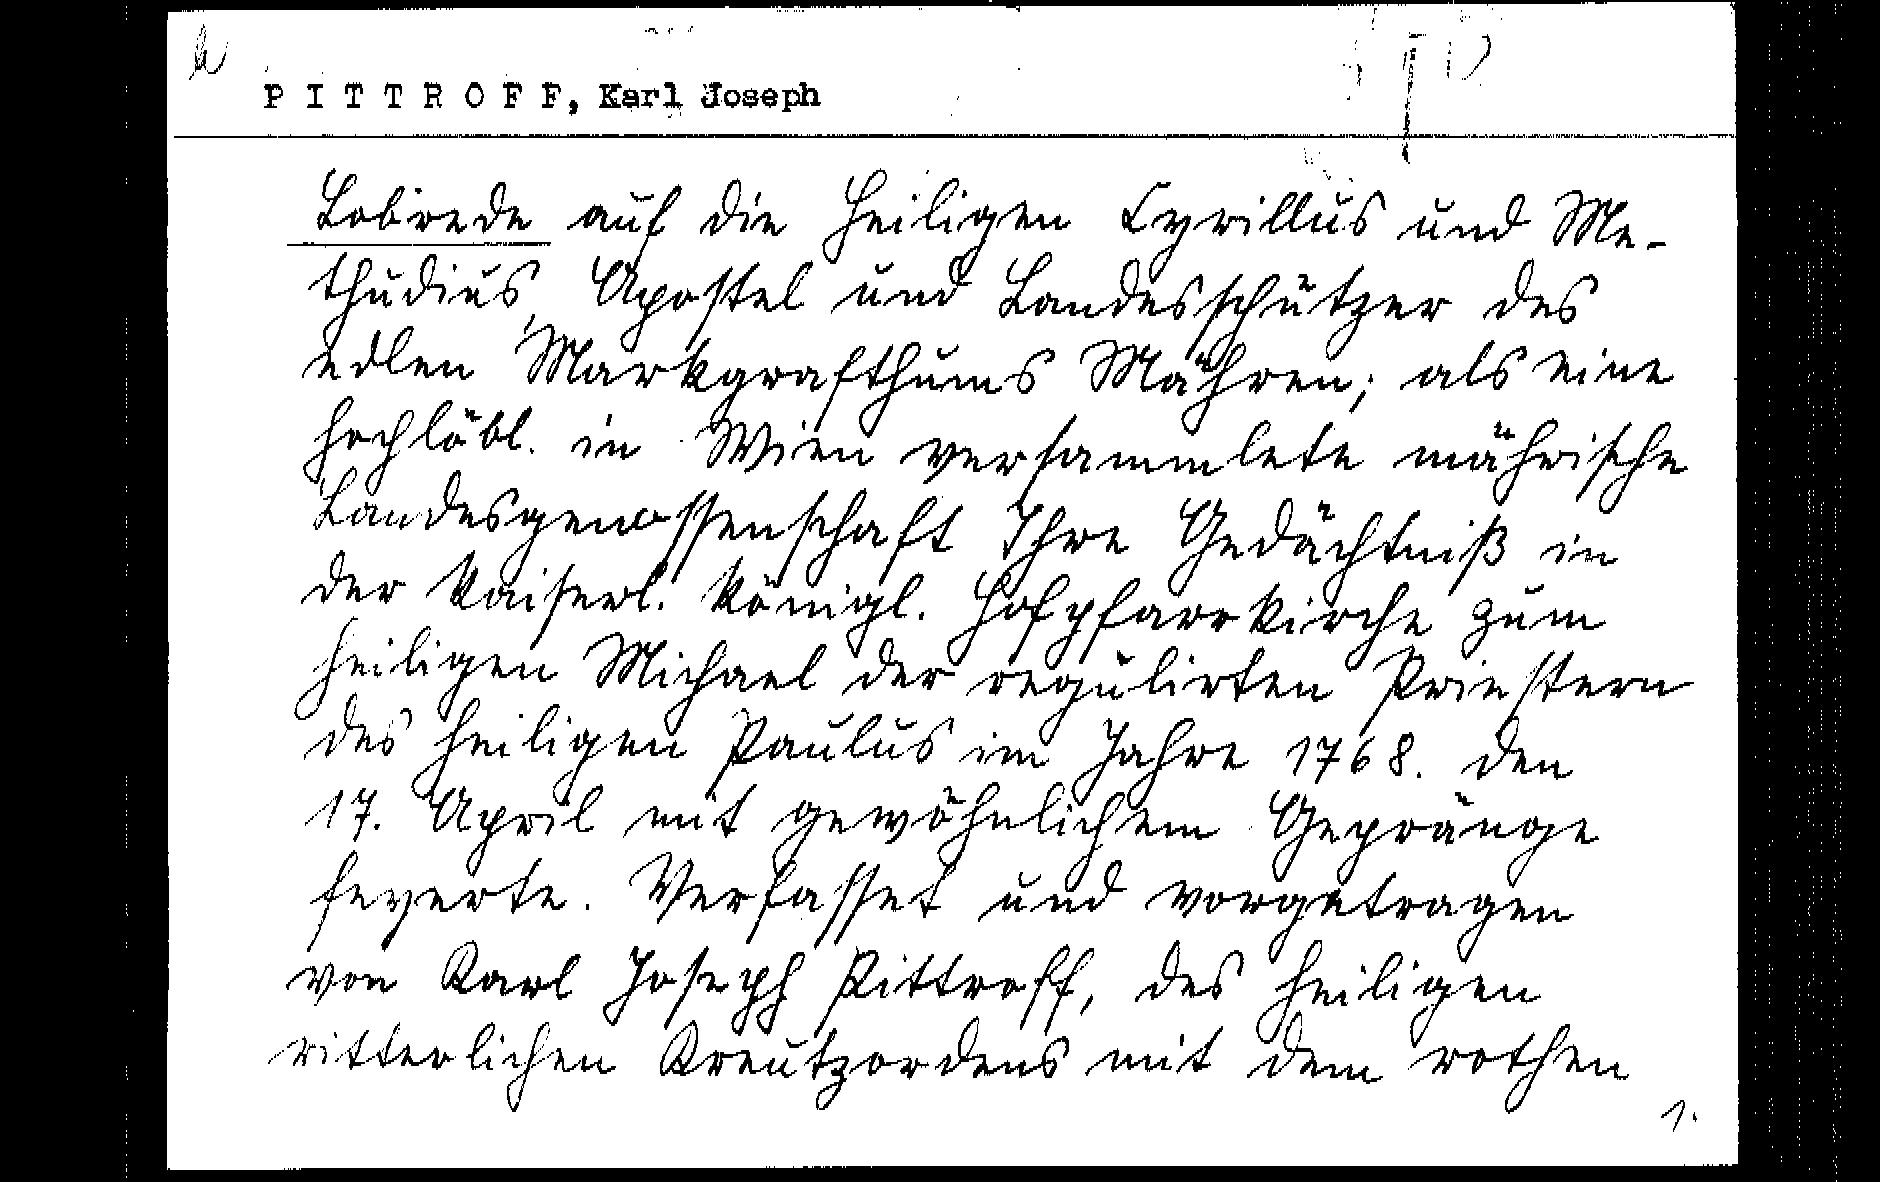 PITTROFF, Karl Joseph
Lobrede auf die heiligen Cyrillus und Me-
thudius, Apostel und Landesschützer des
edlen Markgrafthums Mähren; als eine
hochlöbl. in Wien versammlete mährische
Landesgenossenschaft Ihre Gedächtniß in
der Kaiserl. Königl. Hofpfarrkirche zum
heiligen Michael der regulirten Priestern
des heiligen Paulus im Jahre 1768. den
17. April mit gewöhnlichem Gepränge
feyerte. Verfasset und vorgetragen
von Karl Joseph Pittroff, des heiligen
ritterlichen Kreutzordens mit dem rothen
1.